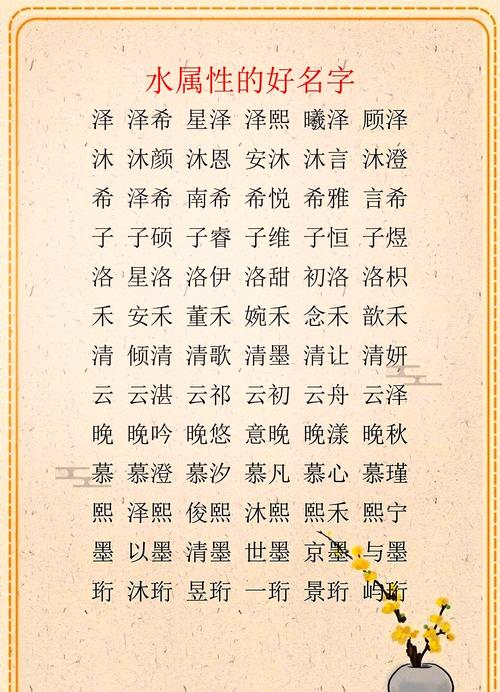 水属性的好名字
泽 泽希 星泽 泽熙 曦泽 顾泽
沐 沐颜 沐恩 安沐 沐言 沐澄
希 泽希 南希 希悦 希雅 言希
子 子硕 子睿 子维 子恒 子煜
洛 星洛 洛伊 洛甜 初洛 洛枳
禾 安禾 董禾 婉禾 念禾 歆禾
清 倾清 清歌 清墨 清让 清妍
云 云湛 云祁 云初 云舟 云泽
晚 晚吟 晚悠 意晚 晚漾 晚秋
慕 慕澄 慕汐 慕凡 慕心 慕瑾
熙 泽熙 俊熙 沐熙 熙禾 熙宁
墨 以墨 清墨 世墨 京墨 与墨
珩 沐珩 昱珩 一珩 景珩 屿珩